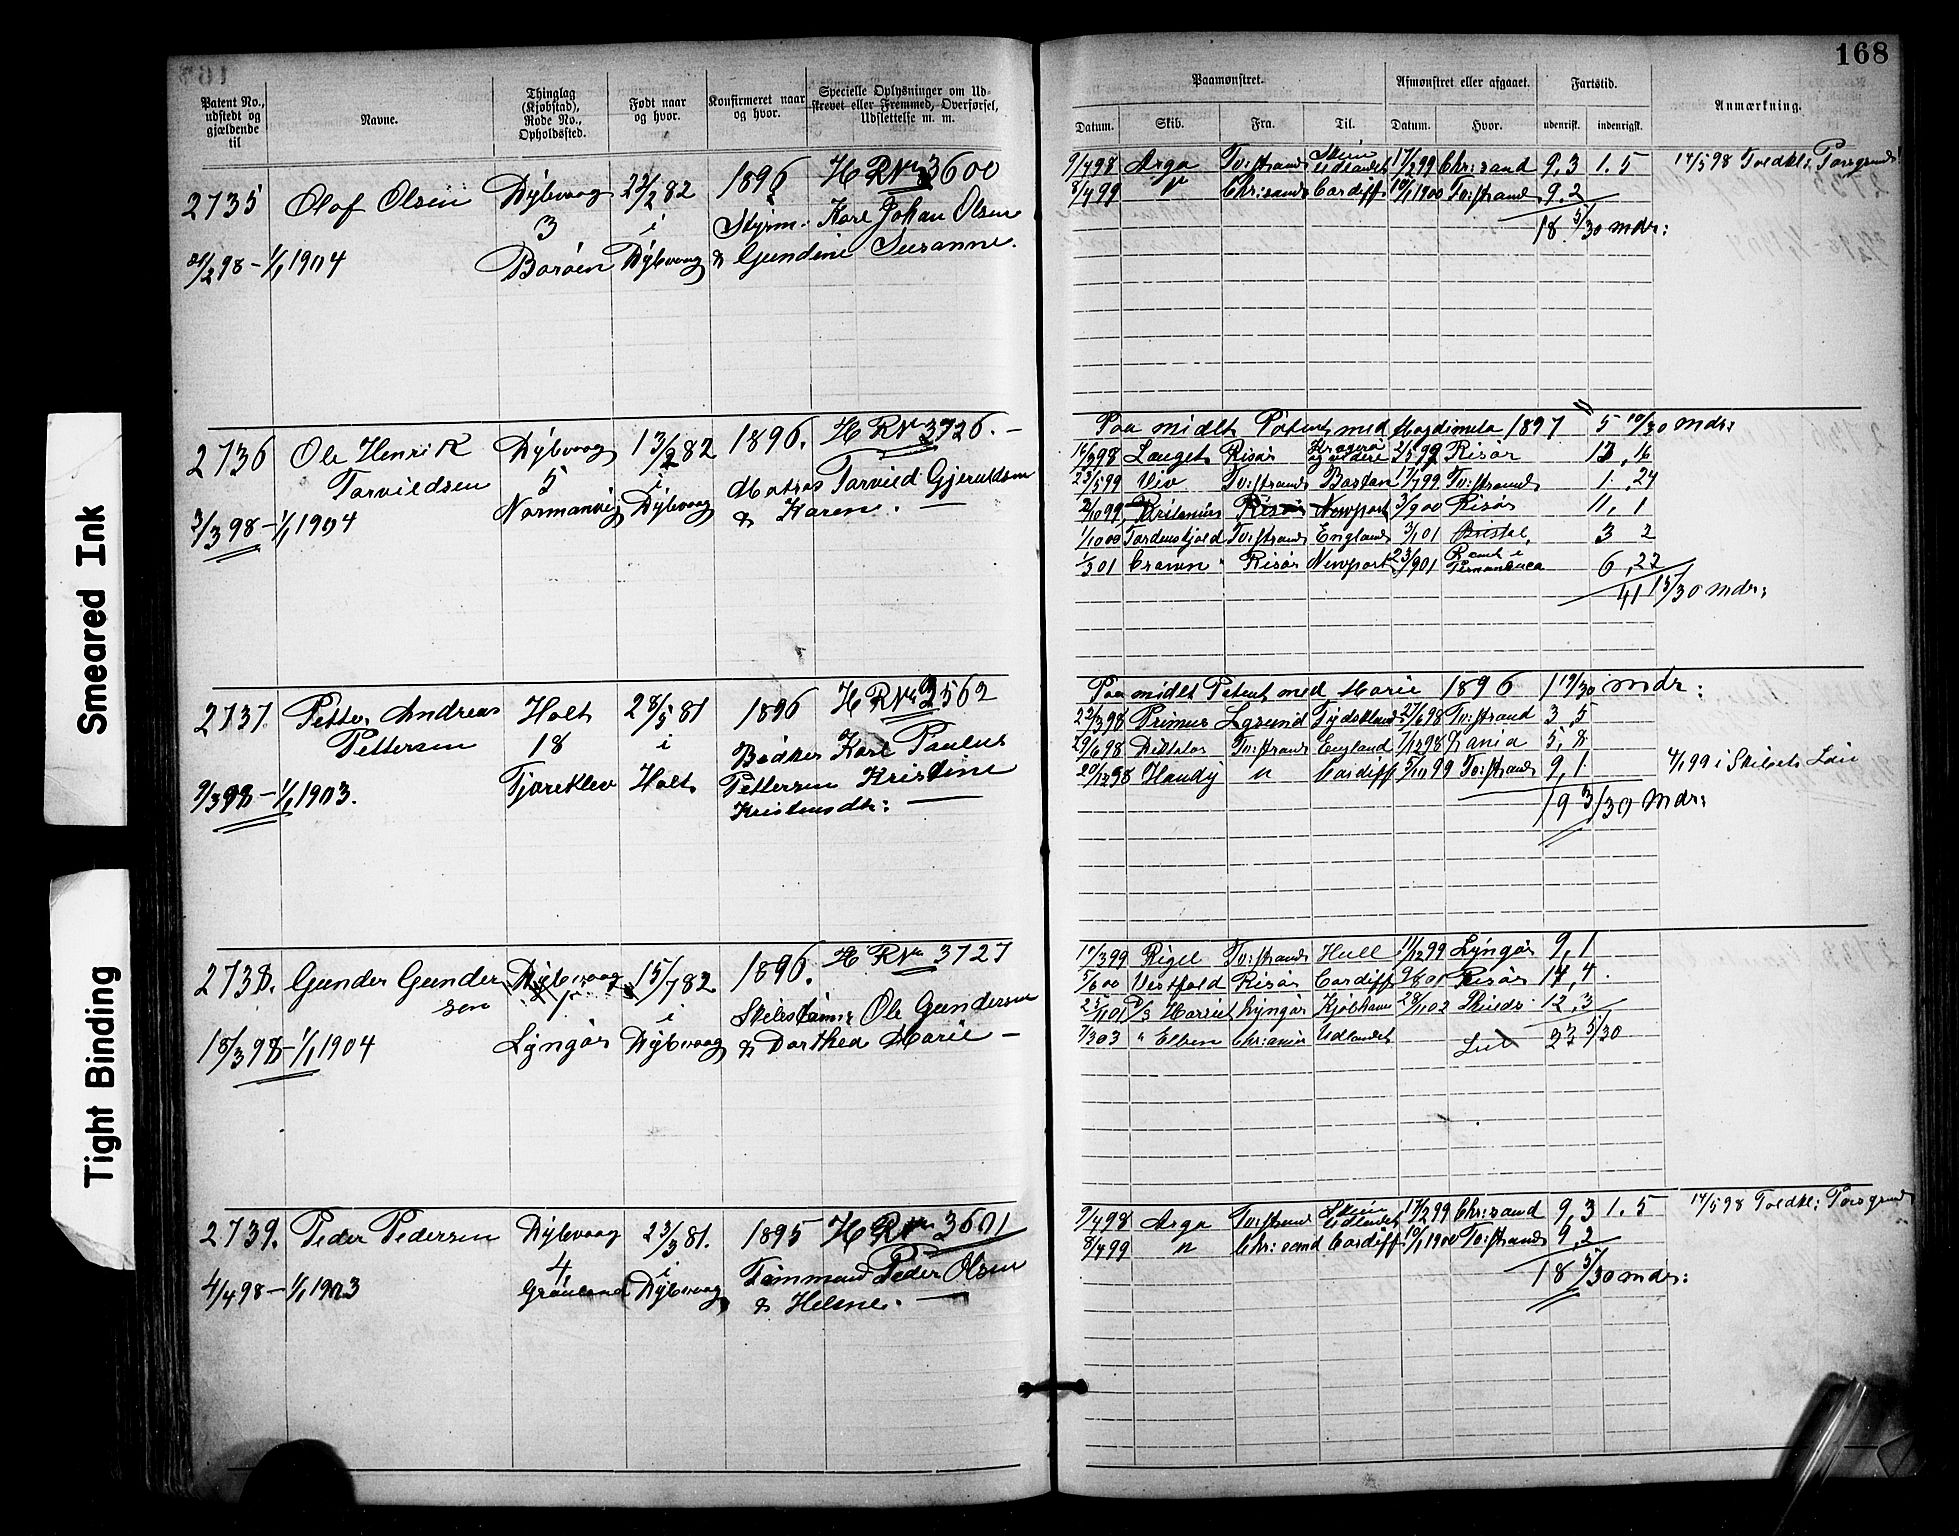 168
Smeared Ink
Tight Binding
Patent No., udstedt og gjældende til
Navne.
Thinglag (Kjøbstad), Rode No., Opholdssted.
Født naar og hvor.
Konfirmeret naar og hvor.
Specielle Oplysninger om Udskrevet eller Fremmed, Overførsel, Udslettelse m. m.
Paamønstret.
Afmønstret eller afgaaet.
Fartstid.
Anmærkning.
Datum. Skib. Fra. Til. Datum. Hvor. udenrigsk. indenrigsk.
2735 Olaf Olsen Dybvaag 23/2 82 1896 H R No 3600
3 i Styrm. Karl Johan Olsen
21/2 98 - 1/1 1904 Borøen Dybvaag & Gundine Susanne.
9/4 98 Arga Tv:strand Skien Udlandet 17/2 99 Chr:sand 9,3 1.5 14/5 98 Toldkl: Porsgrund
8/4 99 " Chr:sand Cardiff 10/1 1900 Tv:strand 9.2
18 5/30 mdr:
2736 Ole Henrik Dybvaag 13/2 82 1896. H R No 3726. -
Torvildsen 5 i Matros Torvild Gjeruldsen
3/3 98 - 1/1 1904 Normanvig Dybvaag & Karen. -
Paa midlt Patent med 1897 5 10/30 mdr:
Risør Kragerø Risør 16
23/5 99 Tv:strand Boston 17/7 99 Tv:strand 1. 24
Risør Newport 3/9 00 Risør 11, 1
1/10 00 Tordenskjold Tv:strand England 3/1 01 Bristol, 3 2
1/3 01 Craven Risør Newport 23/9 01 Rømt i Pernambuco 6,22
41 15/30 mdr:
2737. Petter Andreas Holt 28/5 81 1896 H R No 3562
Pettersen 18 i Bødker Karl Paulus
9/3 98 - 1/1 1903. Tjoreklev Holt Pettersen Kristine
Kristensdtr: -
Paa midlt Patent med Marie 1896 1 19/30 mdr:
22/3 98 Primus Egesund Tydskland 27/6 98 Tv:strand 3,5
29/6 98 Tv:strand England 7/12 98 5,8
20/12 98 Handy " Cardiff 5/10 99 Tv:strand 9,1 4/1 99 i Skibets
19 3/30 mdr:
2738. Gunder Gunder- Dybvaag 15/7 82 1896. H R No 3727
sen i Skibstømr Ole Gundersen
18/3 98 - 1/1 1904 Lyngør Dybvaag & Dorthea Marie -
17/3 99 Rigel Tv:strand Hull 11/12 99 Lyngør 9,1
5/6 00 Vestfold Risør Cardiff Risør 14,4.
Lyngør Kjøbhavn 12,3
7/3 03 " Ellen Chr:ania Udlandet 5/30
2739. Peder Pedersen Dybvaag 23/3 81. 1895 H R No 3601
4 i Tømmermd Peder Olsen
4/4 98 - 1/1 1903 Grønland Dybvaag & Helene. -
9/4 98 Arga Tv:strand Skien Udlandet 17/2 99 Chr:sand 9,3 1.5 14/5 98 Toldkl: Porsgrund
8/4 99 " Chr:sand Cardiff 10/1 1900 Tv:strand 9,2
18 5/30 mdr: